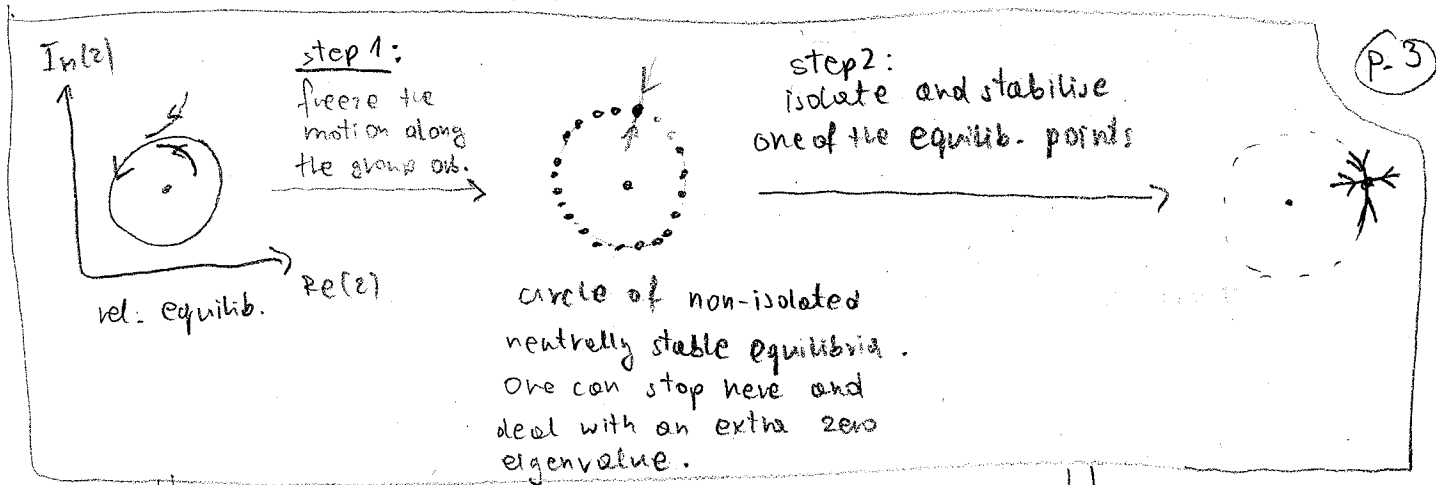 p. 3
Im(z)
Re(z)
rel. equilib.
step 1:
freeze the
motion along
the group orb.
circle of non-isolated
neutrally stable equilibria.
One can stop here and
deal with an extra zero
eigenvalue.
step 2:
isolate and stabilise
one of the equilib. points